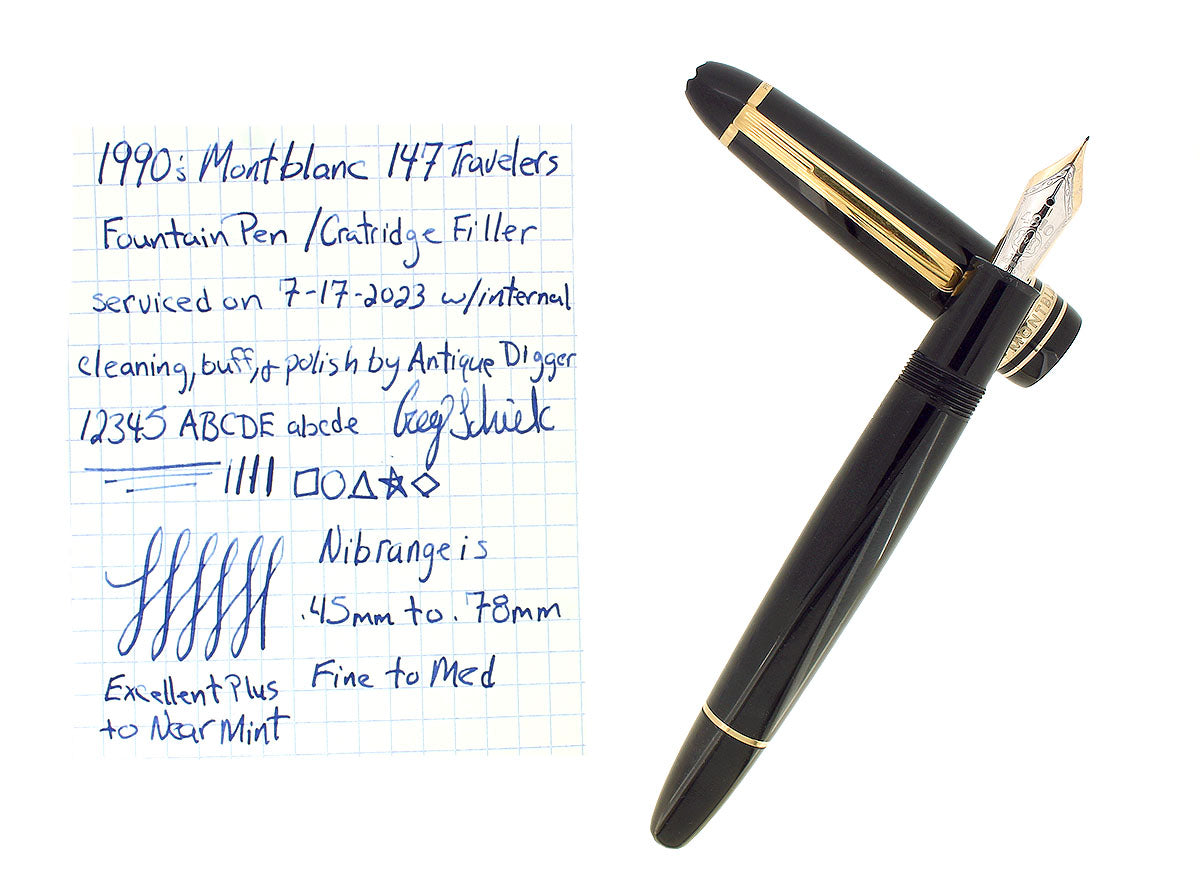 1990's Montblanc 147 Travelers
Fountain Pen / Cratridge Filler
serviced on 7-17-2023 w/internal
cleaning, buff, & polish by Antique Digger
12345 ABCDE abcde Greg Schick
Nib range is
.45mm to .78mm
Fine to Med
Excellent Plus
to Near Mint
MONTBL